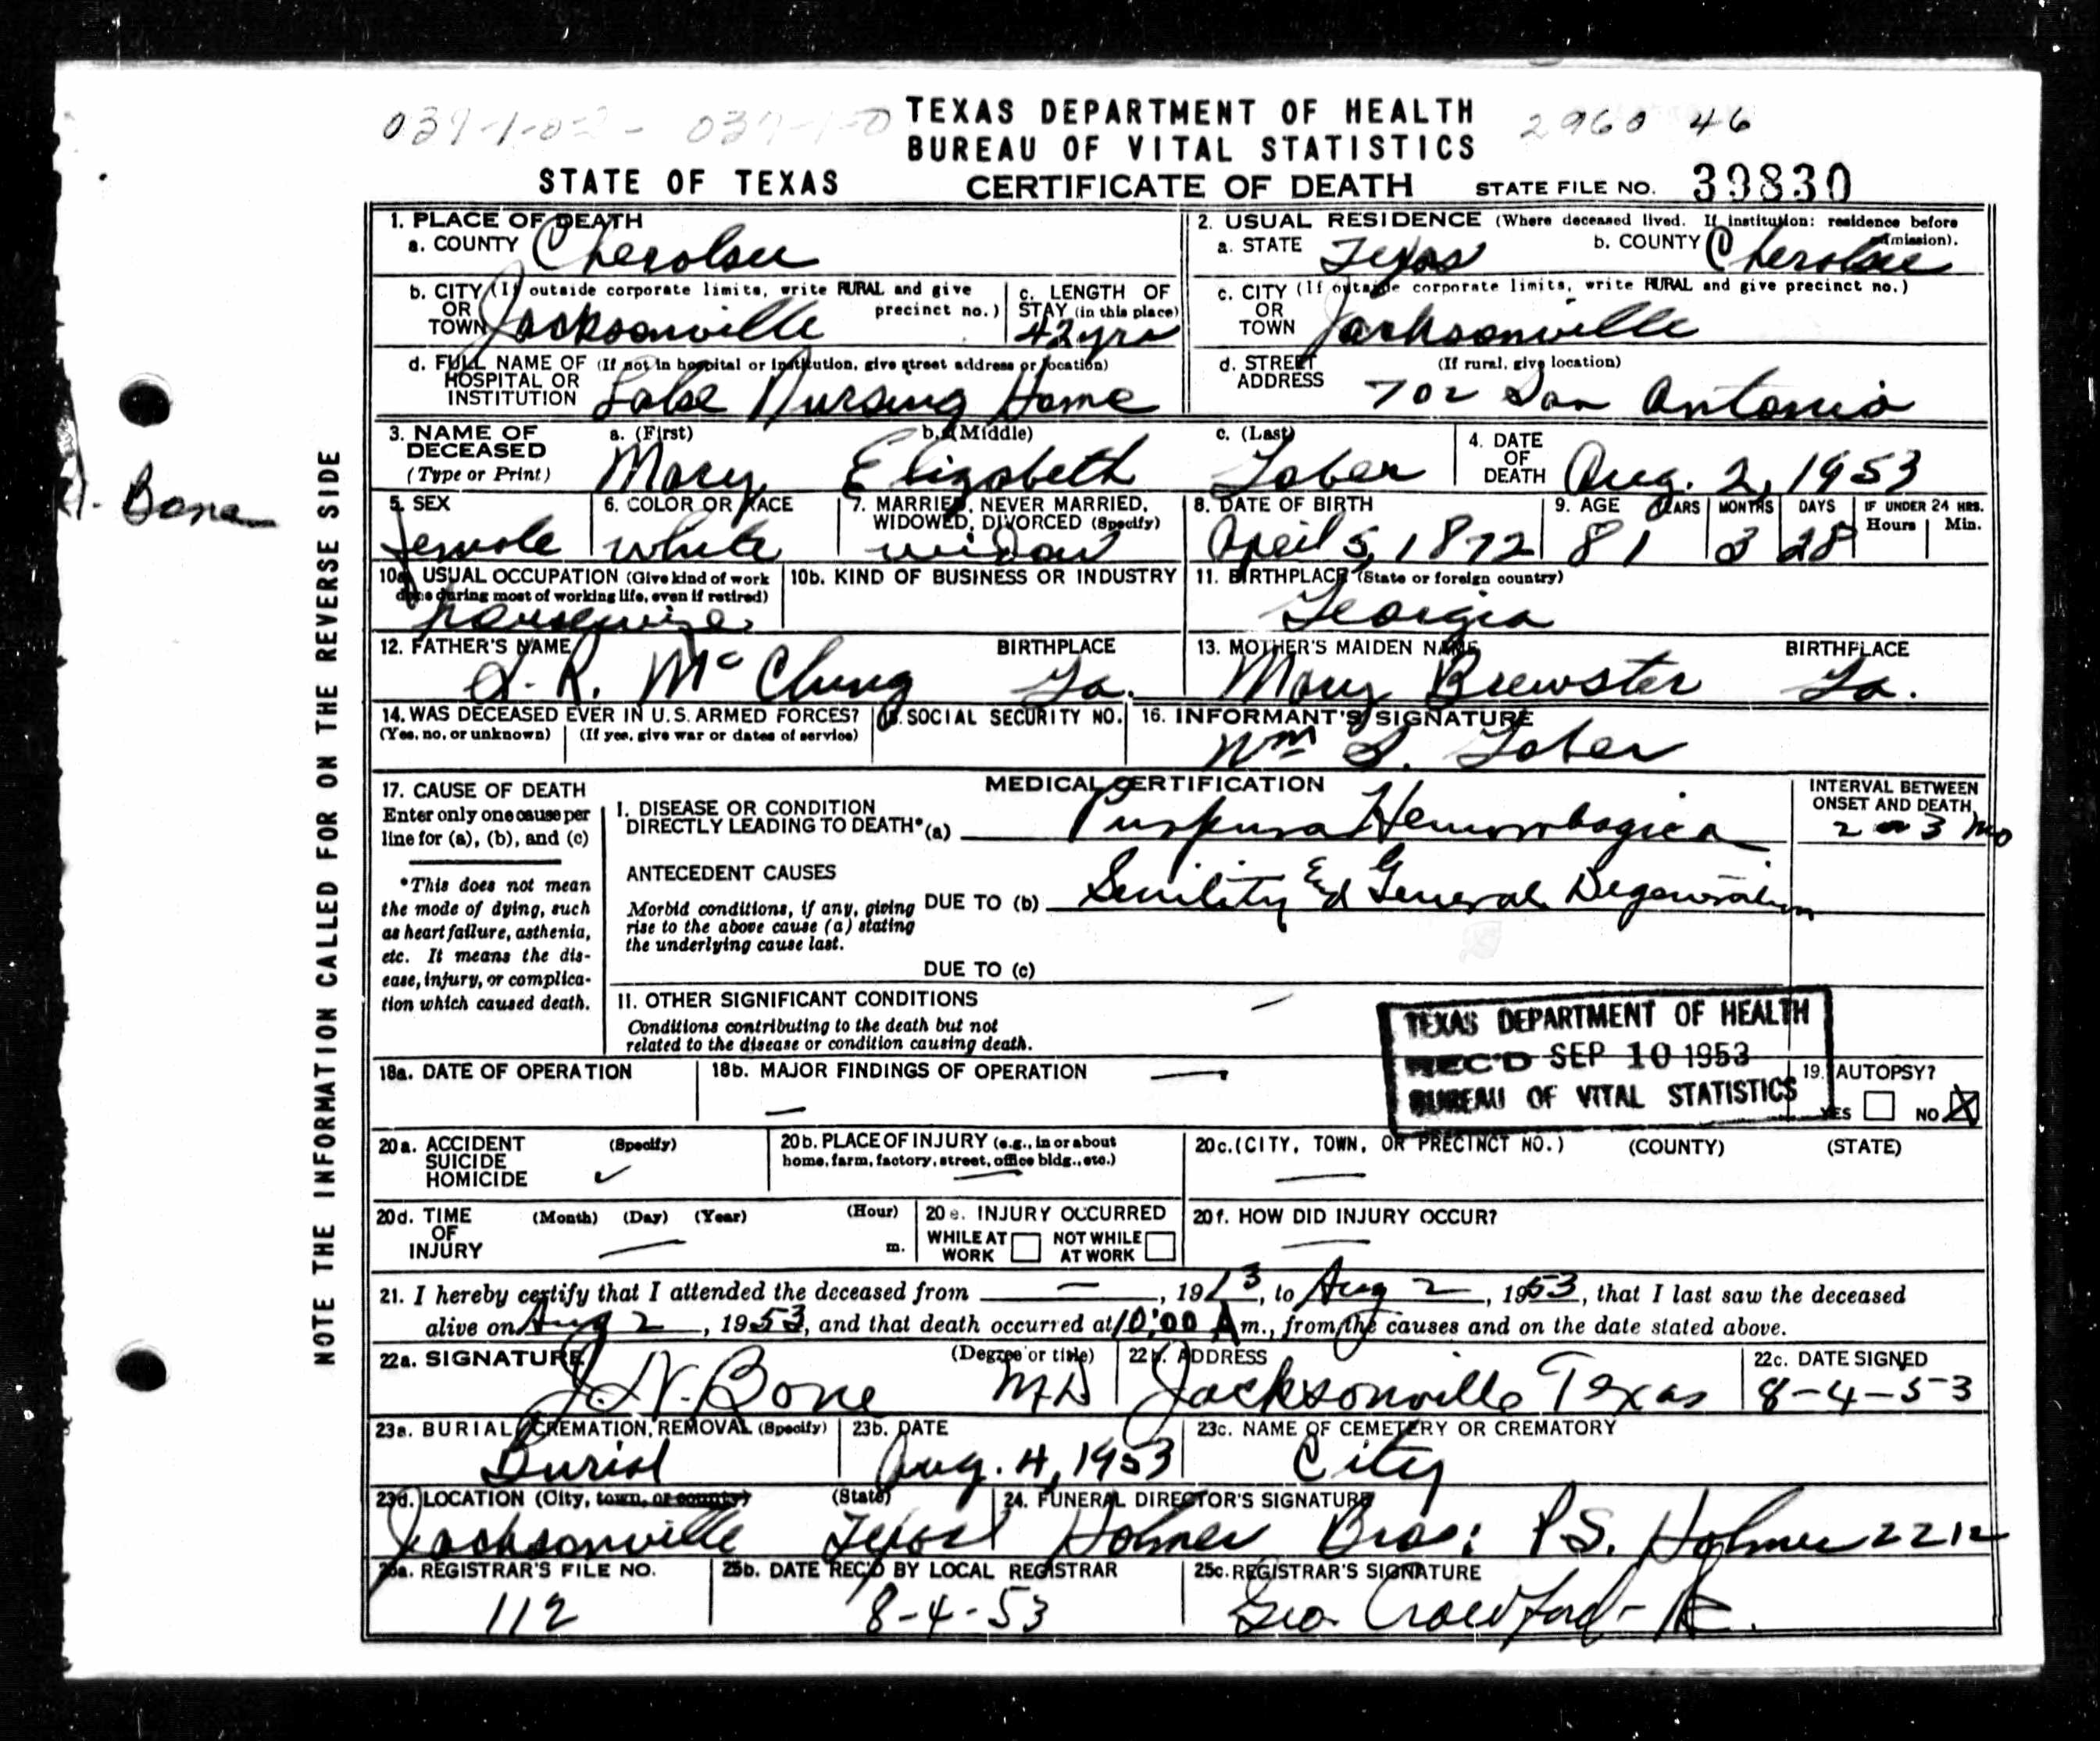 039-1-02 - 039-1-0
TEXAS DEPARTMENT OF HEALTH
2960 46
BUREAU OF VITAL STATISTICS
STATE OF TEXAS CERTIFICATE OF DEATH STATE FILE NO. 39830
1. PLACE OF DEATH
a. COUNTY Cherokee
2. USUAL RESIDENCE (Where deceased lived. If institution: residence before admission).
a. STATE Texas b. COUNTY Cherokee
b. CITY (If outside corporate limits, write RURAL and give precinct no.)
OR
TOWN Jacksonville
c. LENGTH OF
STAY (in this place)
42 yrs
c. CITY (If outside corporate limits, write RURAL and give precinct no.)
OR
TOWN Jacksonville
d. FULL NAME OF (If not in hospital or institution, give street address or location)
HOSPITAL OR
INSTITUTION Nursing Home
d. STREET (If rural, give location)
ADDRESS 702 San Antonio
3. NAME OF
DECEASED
(Type or Print)
a. (First) b. (Middle) c. (Last)
Mary Elizabeth Tober
4. DATE
OF
DEATH Aug. 2, 1953
5. SEX
female
6. COLOR OR RACE
white
7. MARRIED, NEVER MARRIED,
WIDOWED, DIVORCED (Specify)
widow
8. DATE OF BIRTH
April 5, 1872
9. AGE YEARS MONTHS DAYS IF UNDER 24 HRS.
Hours Min.
81 3 28
10a. USUAL OCCUPATION (Give kind of work
done during most of working life, even if retired)
housewife
10b. KIND OF BUSINESS OR INDUSTRY
11. BIRTHPLACE (State or foreign country)
Georgia
12. FATHER'S NAME BIRTHPLACE
R. McClung Ga.
13. MOTHER'S MAIDEN NAME BIRTHPLACE
Mary Brewster Ga.
14. WAS DECEASED EVER IN U.S. ARMED FORCES?
(Yes, no, or unknown) (If yes, give war or dates of service)
15. SOCIAL SECURITY NO.
16. INFORMANT'S SIGNATURE
Wm S. Tober
17. CAUSE OF DEATH
Enter only one cause per
line for (a), (b), and (c)
*This does not mean
the mode of dying, such
as heart failure, asthenia,
etc. It means the dis-
ease, injury, or complica-
tion which caused death.
MEDICAL CERTIFICATION
I. DISEASE OR CONDITION
DIRECTLY LEADING TO DEATH* (a) Purpura Hemorrhagica
INTERVAL BETWEEN
ONSET AND DEATH
2 or 3 mo
ANTECEDENT CAUSES
Morbid conditions, if any, giving
rise to the above cause (a) stating
the underlying cause last.
DUE TO (b) Senility & General Degeneration
DUE TO (c)
II. OTHER SIGNIFICANT CONDITIONS
Conditions contributing to the death but not
related to the disease or condition causing death.
TEXAS DEPARTMENT OF HEALTH
REC'D SEP 10 1953
BUREAU OF VITAL STATISTICS
18a. DATE OF OPERATION
18b. MAJOR FINDINGS OF OPERATION
19. AUTOPSY?
YES NO X
20a. ACCIDENT (Specify)
SUICIDE
HOMICIDE
20b. PLACE OF INJURY (e.g., in or about
home, farm, factory, street, office bldg., etc.)
20c. (CITY, TOWN, OR PRECINCT NO.) (COUNTY) (STATE)
20d. TIME (Month) (Day) (Year) (Hour)
OF
INJURY m.
20e. INJURY OCCURRED
WHILE AT
WORK
NOT WHILE
AT WORK
20f. HOW DID INJURY OCCUR?
21. I hereby certify that I attended the deceased from —, 1913, to Aug 2, 1953, that I last saw the deceased
alive on Aug 2, 1953, and that death occurred at 10:00 A m., from the causes and on the date stated above.
22a. SIGNATURE (Degree or title)
J.N. Bone MD
22b. ADDRESS
Jacksonville Texas
22c. DATE SIGNED
8-4-53
23a. BURIAL, CREMATION, REMOVAL (Specify)
Burial
23b. DATE
Aug. 4, 1953
23c. NAME OF CEMETERY OR CREMATORY
City
23d. LOCATION (City, town, or county) (State)
Jacksonville Texas
24. FUNERAL DIRECTOR'S SIGNATURE
Holmes Bros: P.S. Holmes 2212
25a. REGISTRAR'S FILE NO.
112
25b. DATE REC'D BY LOCAL REGISTRAR
8-4-53
25c. REGISTRAR'S SIGNATURE
Geo. Crawford
NOTE THE INFORMATION CALLED FOR ON THE REVERSE SIDE
Bone